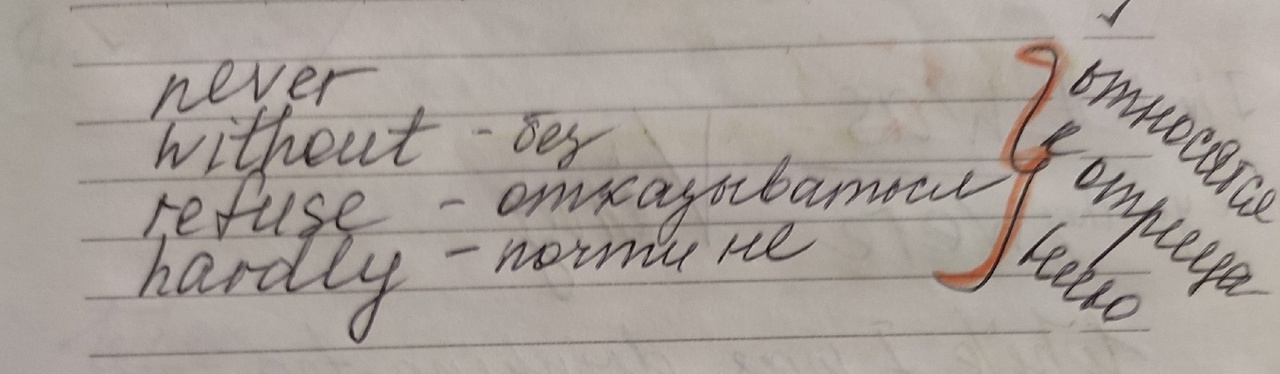 never
without - без
refuse - отказываться
hardly - почти не
относятся
к отрица
нию